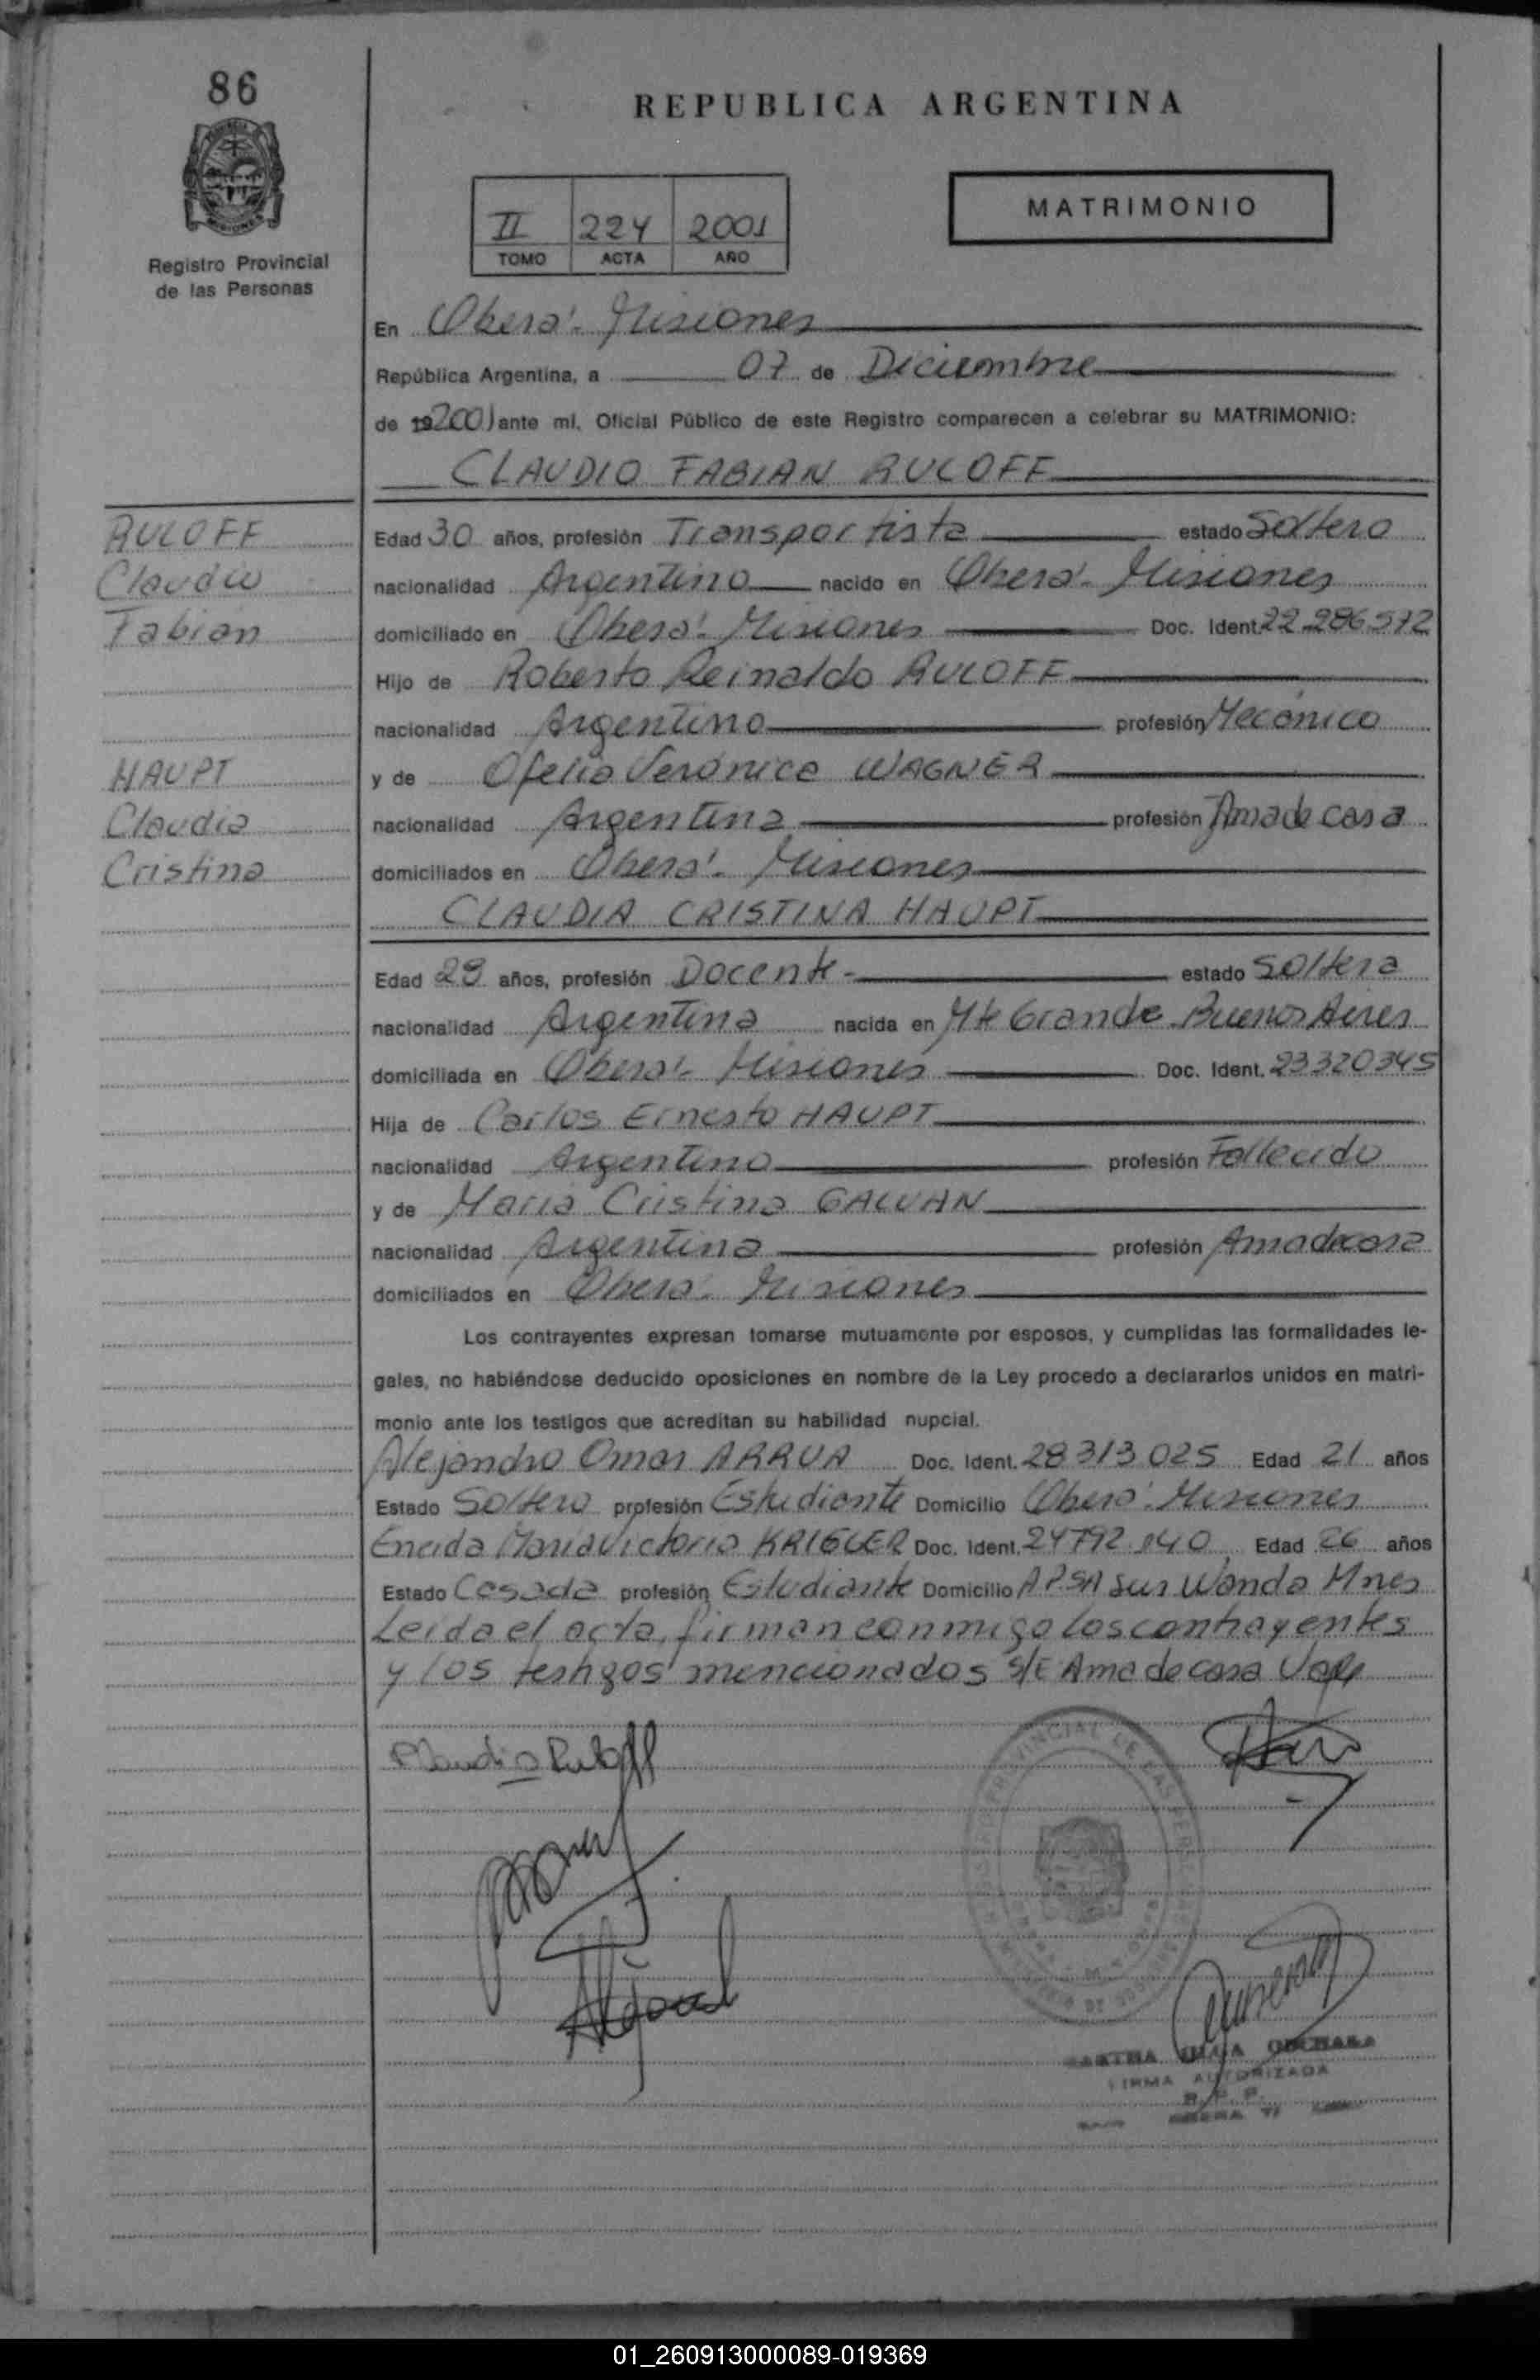 86
REPUBLICA ARGENTINA
MATRIMONIO
II 224 2001
TOMO ACTA AÑO
Registro Provincial
de las Personas
En Oberá - Misiones
República Argentina, a 07 de Diciembre
de 2001 ante mí, Oficial Público de este Registro comparecen a celebrar su MATRIMONIO:
CLAUDIO FABIAN RULOFF
RULOFF
Claudio
Fabian
Edad 30 años, profesión Transportista estado Soltero
nacionalidad Argentino nacido en Oberá - Misiones
domiciliado en Oberá - Misiones Doc. Ident. 22.286.572
Hijo de Roberto Reinaldo RULOFF
nacionalidad Argentino profesión Mecánico
HAUPT
Claudia
Cristina
y de Ofelia Verónica WAGNER
nacionalidad Argentina profesión Ama de casa
domiciliados en Oberá - Misiones
CLAUDIA CRISTINA HAUPT
Edad 29 años, profesión Docente - estado Soltera
nacionalidad Argentina nacida en Mte Grande - Buenos Aires
domiciliada en Oberá - Misiones Doc. Ident. 23320345
Hija de Carlos Ernesto HAUPT
nacionalidad Argentino profesión Fallecido
y de Maria Cristina GALVAN
nacionalidad Argentina profesión Ama de casa
domiciliados en Oberá - Misiones
Los contrayentes expresan tomarse mutuamente por esposos, y cumplidas las formalidades le-
gales, no habiéndose deducido oposiciones en nombre de la Ley procedo a declararlos unidos en matri-
monio ante los testigos que acreditan su habilidad nupcial.
Alejandro Omar ARRUA Doc. Ident. 28.313.025 Edad 21 años
Estado Soltero profesión Estudiante Domicilio Oberá - Misiones
Eneida Maria Victoria KRIEGER Doc. Ident. 24792.140 Edad 26 años
Estado Casada profesión Estudiante Domicilio APSA Sur Wanda Mnes
Leída el acta, firman conmigo los contrayentes
y los testigos mencionados S/E Ama de casa Vale
Claudio Ruloff
FIRMA AUTORIZADA
R. P. P.
01_260913000089-019369